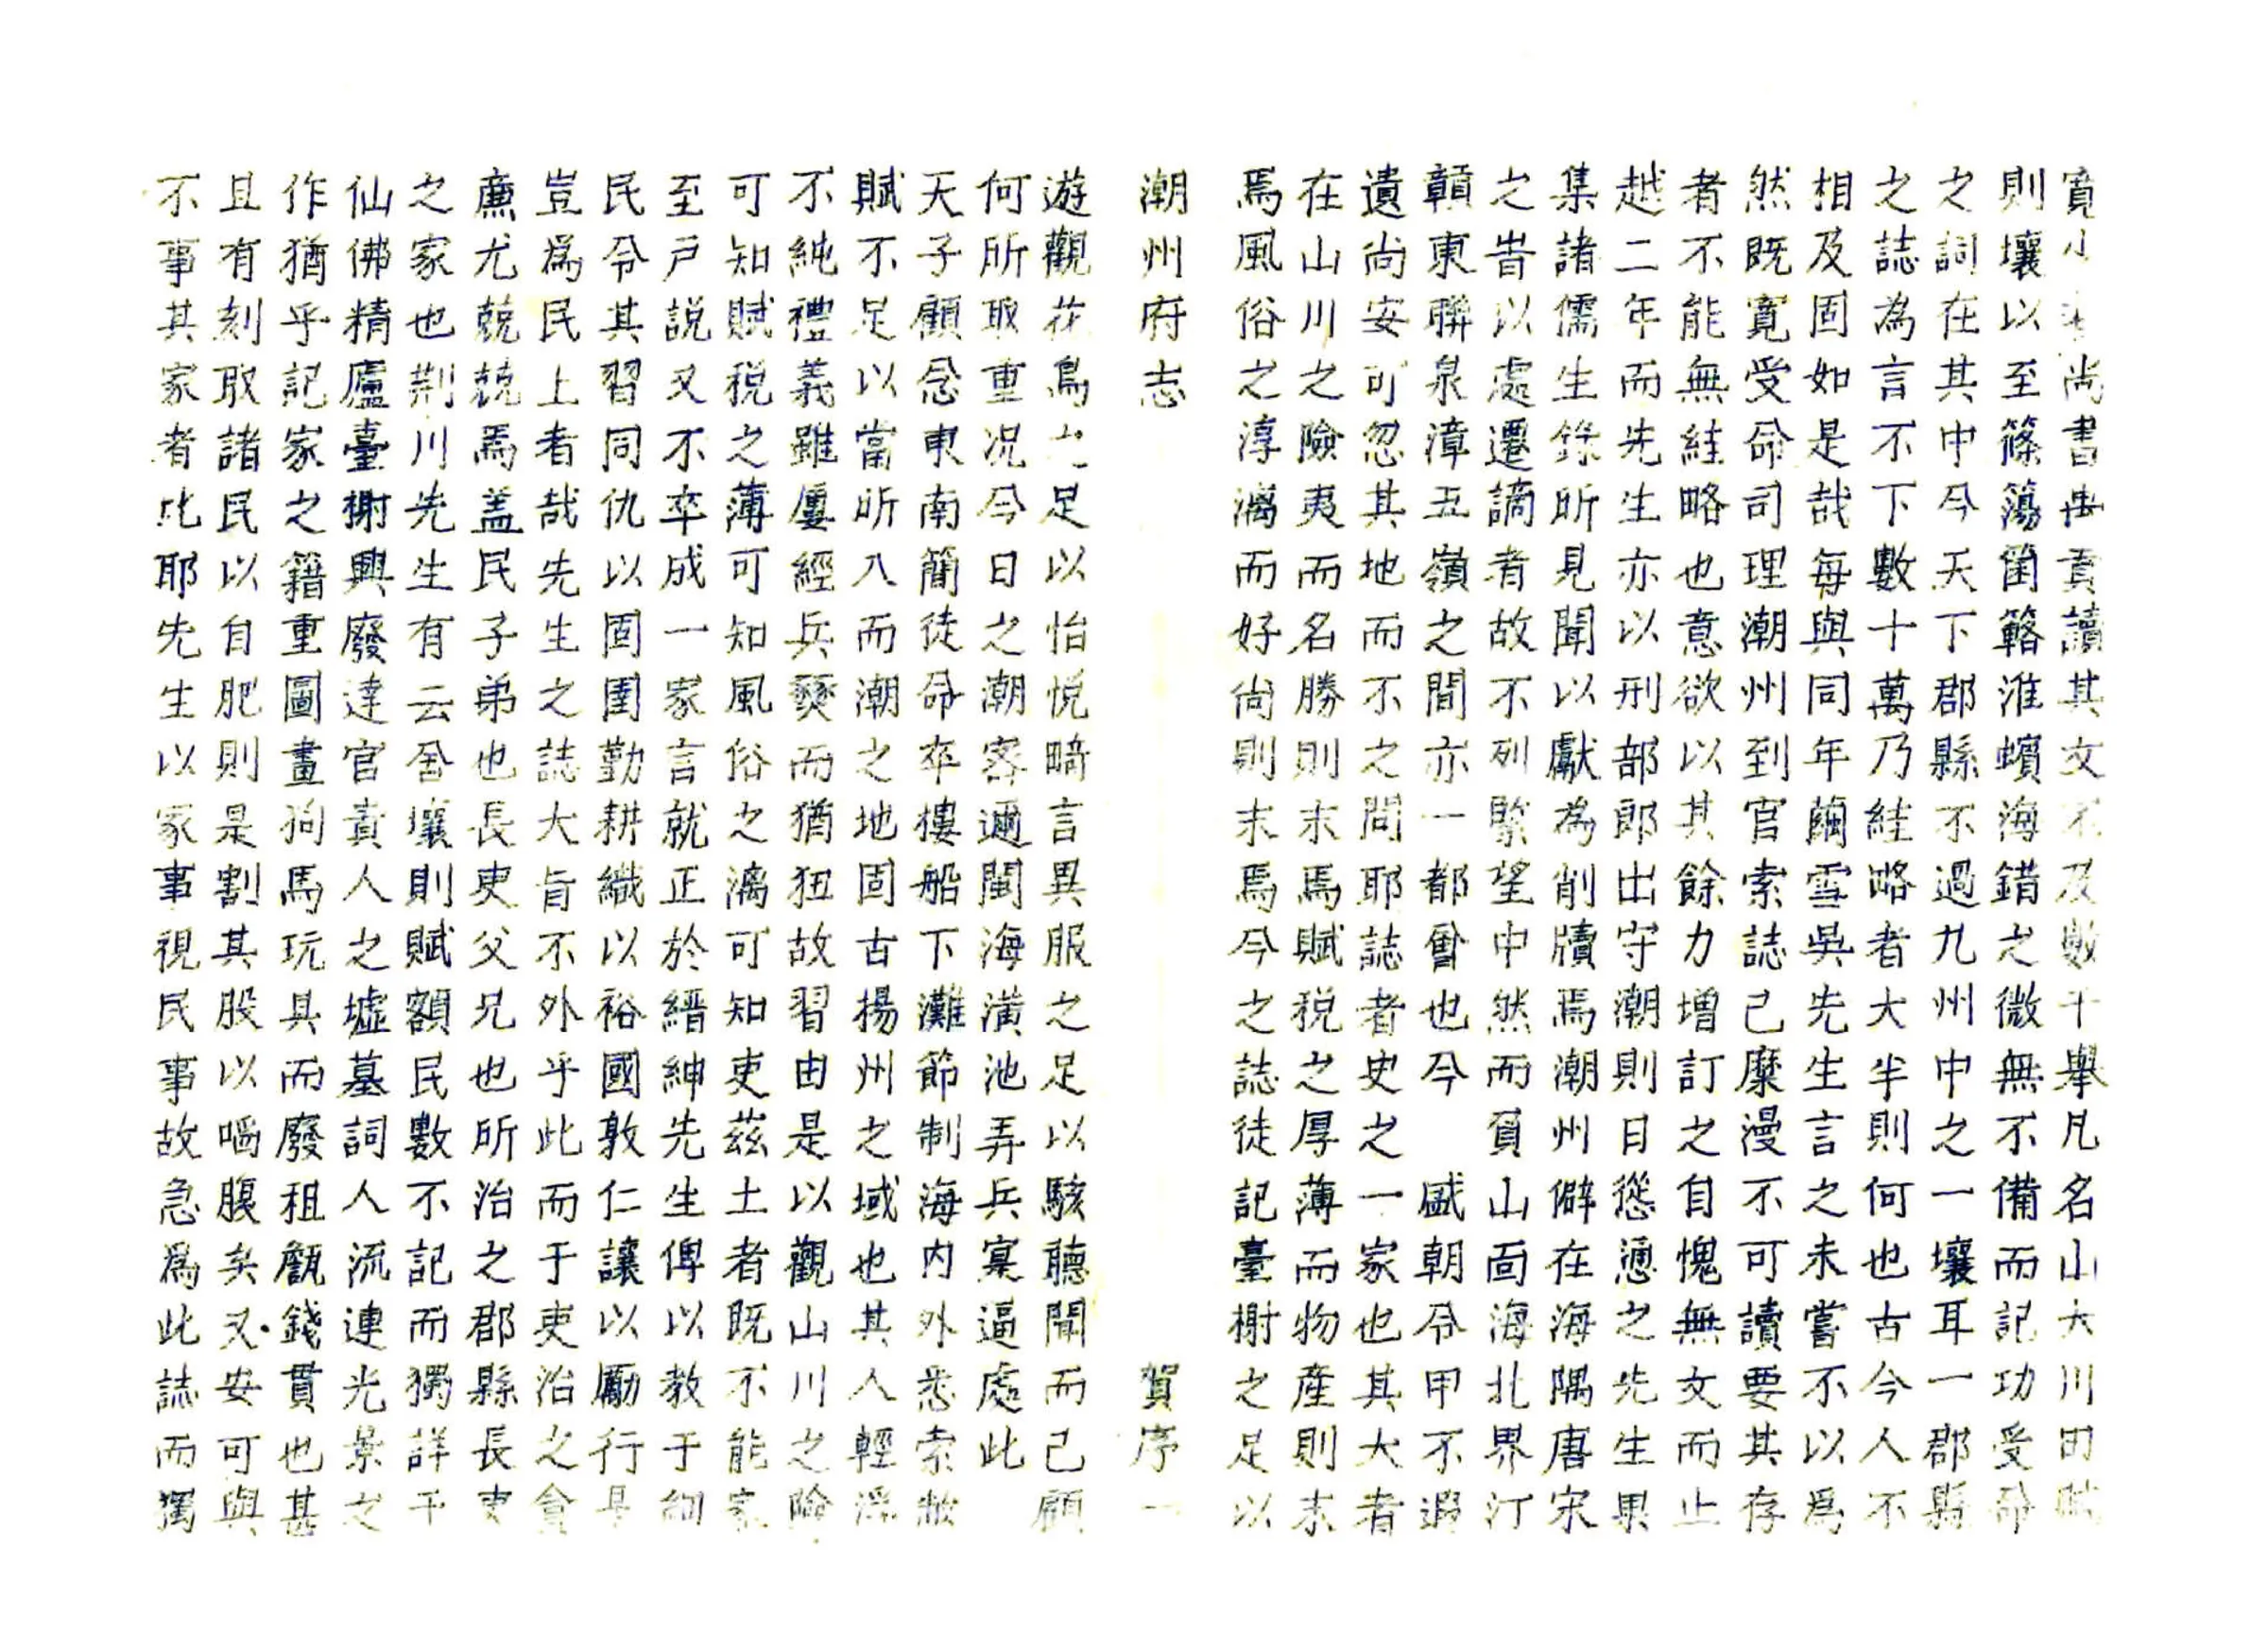 寛小時尚書禹貢讀其文不及數千舉凡名山大川田賦
則壤以至篠簜箘簵淮蠙海錯之微無不備而記功受命
之詞在其中今天下郡縣不過九州中之一壤耳一郡縣
之誌為言不下數十萬乃絓略者大半則何也古今人不
相及固如是哉每與同年繭雪吳先生言之未嘗不以爲
然既寛受命司理潮州到官索誌已糜漫不可讀要其存
者不能無絓略也意欲以其餘力增訂之自愧無文而止
越二年而先生亦以刑部郎出守潮則日慫慂之先生果
集諸儒生錄所見聞以獻為削牘焉潮州僻在海隅唐宋
之昔以處遷謫者故不列緊望中然而負山面海北界汀
贑東聯泉漳五嶺之間亦一都會也今 盛朝令甲不遐
遺尚安可忽其地而不之問耶誌者史之一家也其大者
在山川之險夷而名勝則末焉賦稅之厚薄而物產則末
焉風俗之淳漓而好尚則末焉今之誌徒記臺榭之足以
潮州府志 賀序 一
遊觀花鳥之足以怡悅畸言異服之足以駭聽聞而已顧
何所取重况今日之潮密邇閩海潢池弄兵寞逼處此
天子顧念東南簡徒命卒樓船下灘節制海内外悉索敝
賦不足以當所入而潮之地固古揚州之域也其人輕浮
不純禮義雖屢經兵燹而猶狃故習由是以觀山川之險
可知賦税之薄可知風俗之漓可知吏茲土者既不能家
至戸説又不卒成一家言就正於縉紳先生俾以教于細
民令其習同仇以固圉勤耕織以裕國敦仁讓以勵行是
豈為民上者哉先生之誌大旨不外乎此而于吏治之貪
廉尤兢兢焉盖民子弟也長吏父兄也所治之郡縣長吏
之家也荆川先生有云舍壤則賦額民數不記而獨詳于
仙佛精廬臺榭興廢達官貴人之墟墓詞人流連光景之
作猶乎記家之籍重圖畫狗馬玩具而廢租甔錢貫也甚
且有刻取諸民以自肥則是割其股以啗腹矣又安可與
不事其家者比耶先生以家事視民事故急爲此誌而獨